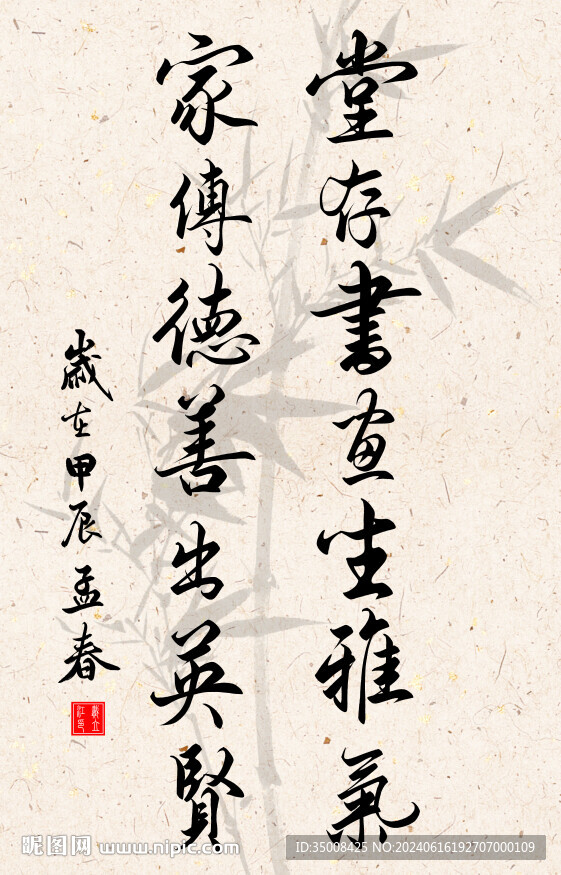 堂存書画生雅氣
家傳德善出英賢
歲在甲辰孟春
昵图网 www.nipic.com
ID:35008425 NO:20240616192707000109